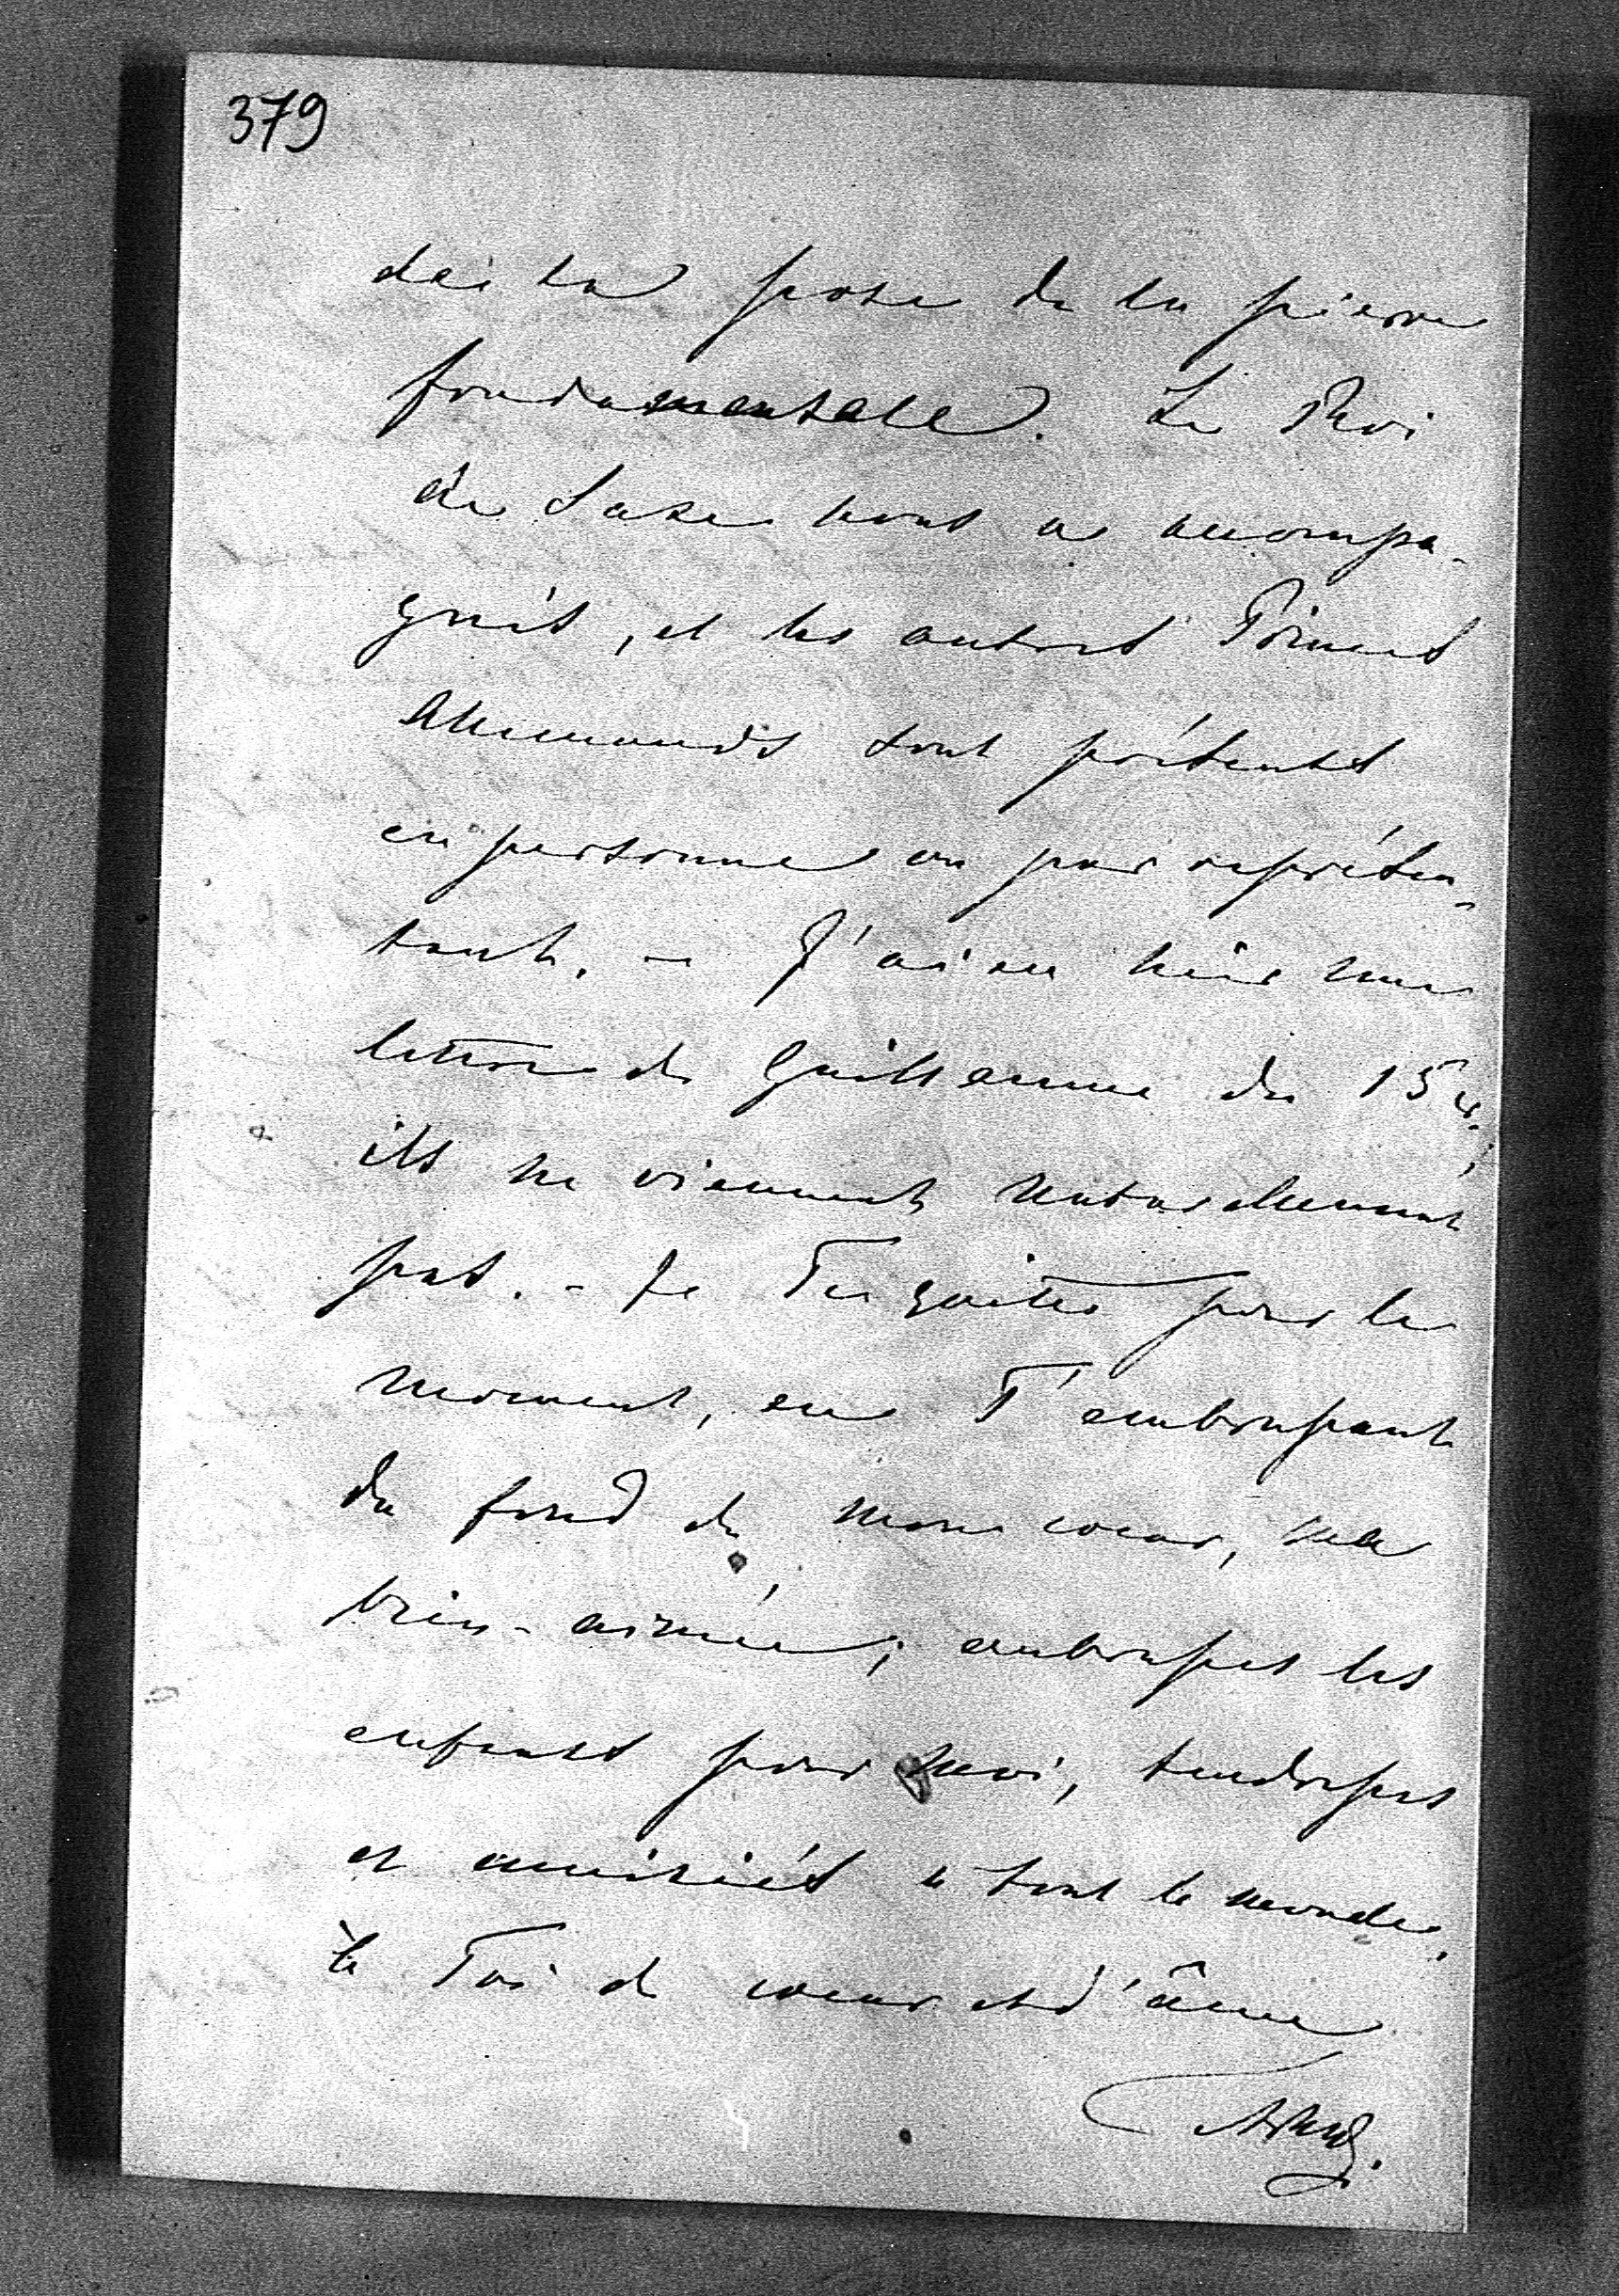 379
dei la pose de la pierre
fondamentale. Le Roi
de Saxe nous a accompa-
gnés, et les autres Princes
Allemands sont présents
en personne ou par représen-
tant. – J'ai eu hier une
lettre de Guillaume du 15 ct.;
ils ne viennent naturellement
pas. – Je Te quitte pour le
moment, en T'embrassant
du fond de mon coeur, ma
bien-aimée; embrasses les
enfants pour moi, tendresses
et amitiés à tout le monde.
à Toi de coeur et d'âme